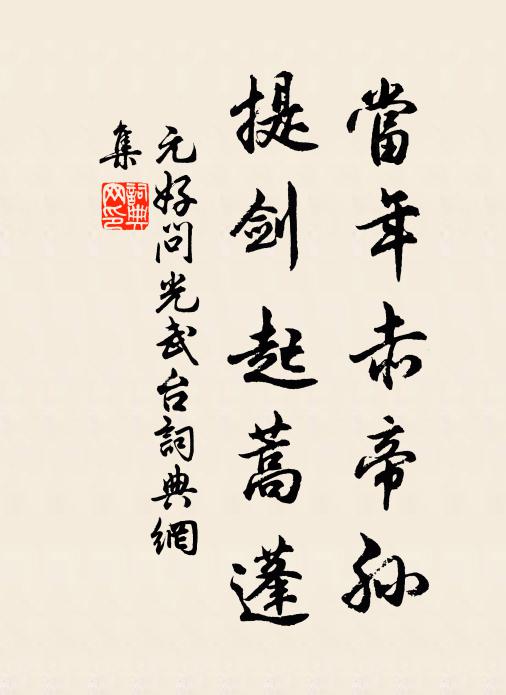 當年赤帝孫
提劍起蒿蓬
元好問光武台詞典網
集
詞典
网印